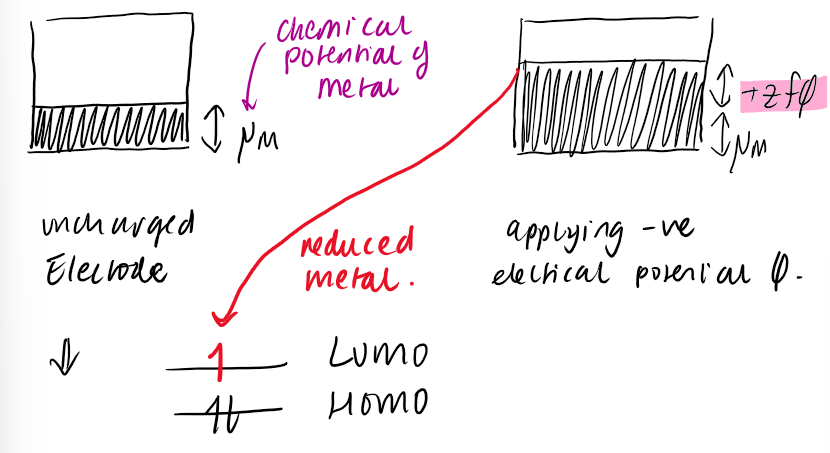 chemical
potential of
metal
μM
+zfφ
μM
uncharged
Electrode
reduced
metal.
applying -ve
electrical potential φ.
⇓
LUMO
HOMO